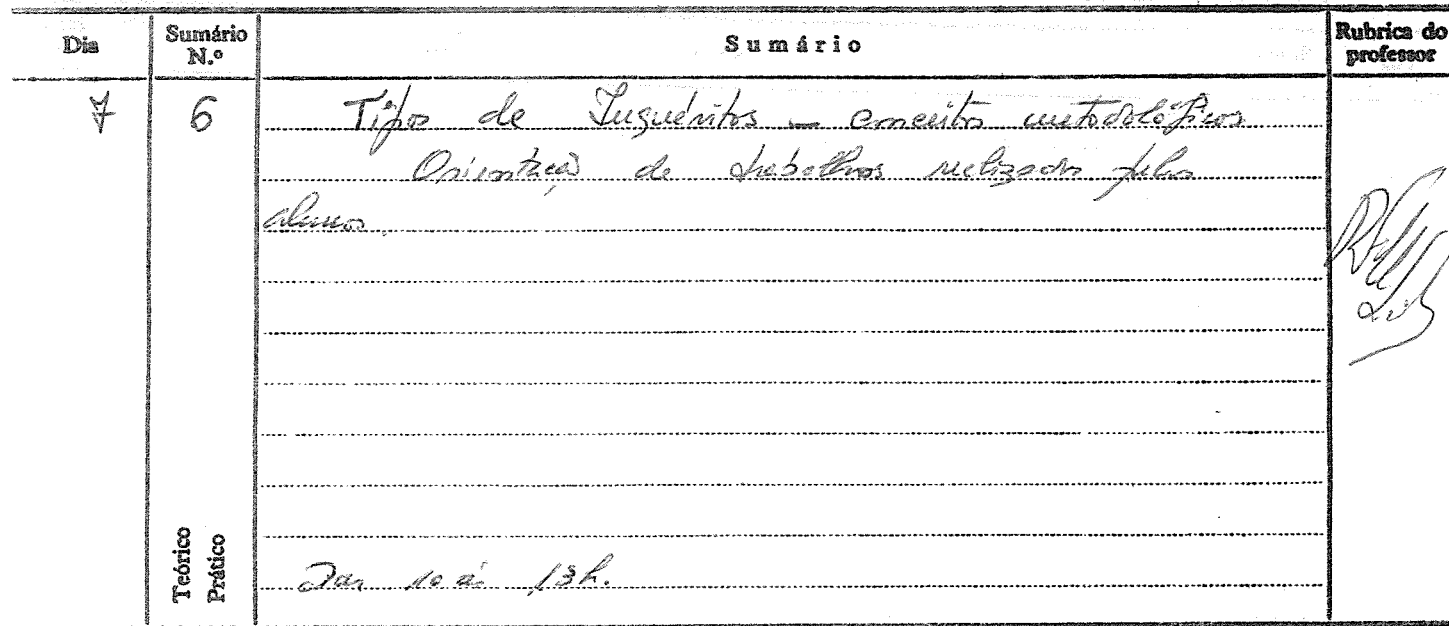 Dia
Sumário N.º
Sumário
Rubrica do professor
7
6
Tipos de Inquéritos – conceitos metodológicos
Orientação de trabalhos realizados pelos
alunos.
Teórico
Prático
Das 10 às 13h.